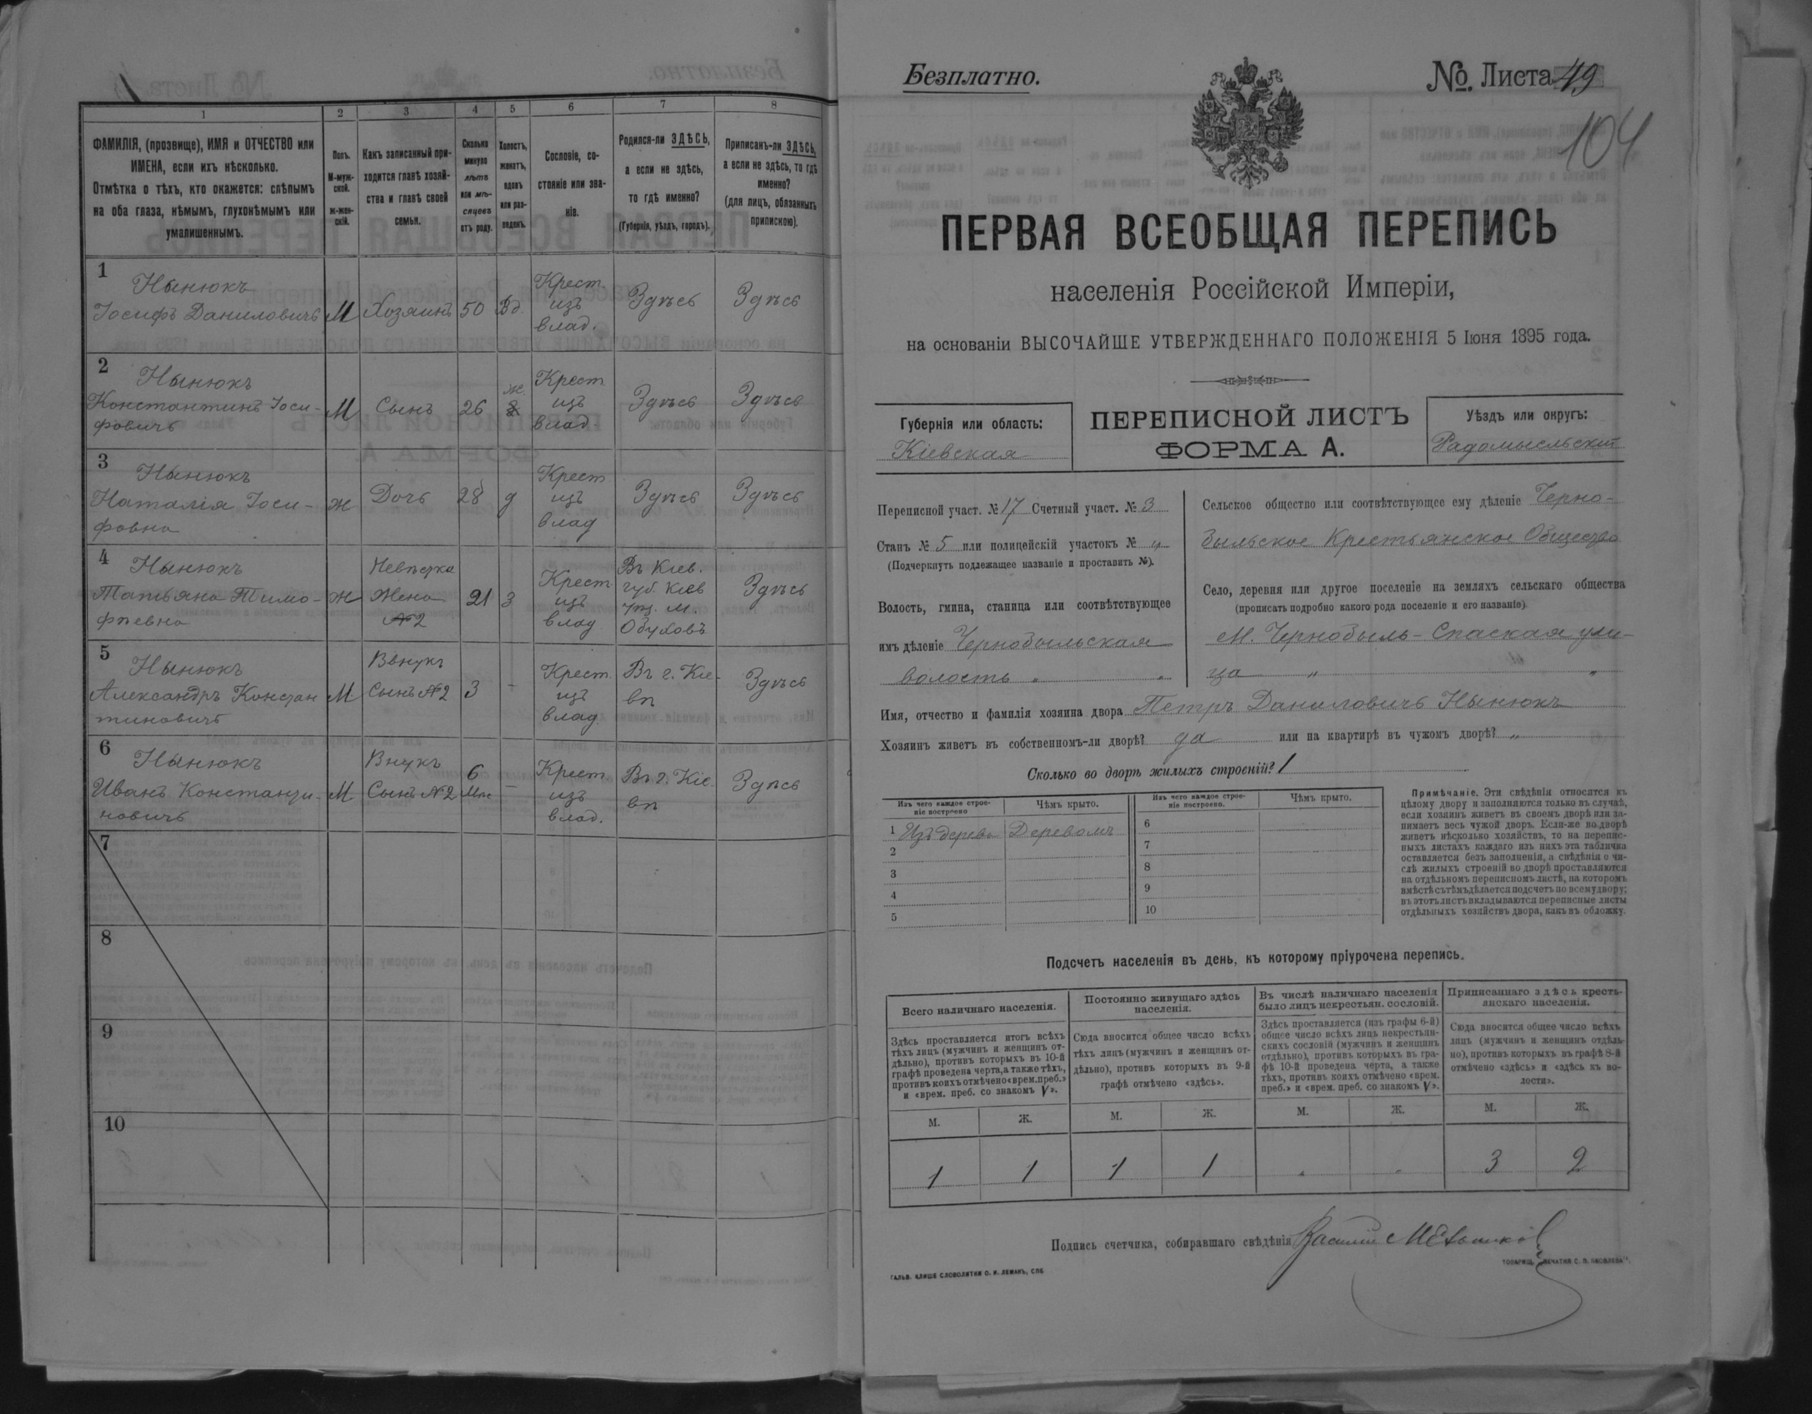 1 2 3 4 5 6 7 8
ФАМИЛІЯ, (прозвище), ИМЯ и ОТЧЕСТВО или
ИМЕНА, если ихъ нѣсколько.
Отмѣтка о тѣхъ, кто окажется: слѣпымъ
на оба глаза, нѣмымъ, глухонѣмымъ или
умалишеннымъ.
Полъ.
М-муж-
ской.
ж-жен-
скій.
Какъ записанный при-
ходится главѣ хозяй-
ства и главѣ своей
семьи.
Сколько
минуло
лѣтъ
или мѣ-
сяцевъ
отъ роду.
Холостъ,
женатъ,
вдовъ
или раз-
веденъ.
Сословіе, со-
стояніе или зва-
ніе.
Родился-ли ЗДѢСЬ,
а если не здѣсь,
то гдѣ именно?
(Губернія, уѣздъ, городъ).
Приписанъ-ли ЗДѢСЬ,
а если не здѣсь, то гдѣ
именно?
(для лицъ, обязанныхъ
припискою).
1
Нынюкъ
Іосифъ Даниловичъ
М
Хозяинъ
50
Вд.
Крест.
изъ
влад.
Здѣсь
Здѣсь
2
Нынюкъ
Константинъ Іоси-
фовичъ
М
Сынъ
26
ж.
Крест
изъ
влад.
Здѣсь
Здѣсь
3
Нынюкъ
Наталія Іоси-
фовна
ж
Дочь
28
д
Крест
изъ
влад
Здѣсь
Здѣсь
4
Нынюкъ
Татьяна Тимо-
фѣевна
ж
Невѣстка
Жена
№2
21
З
Крест
изъ
влад
Въ Кіев.
губ. Кіев
уѣз. м.
Обуховъ
Здѣсь
5
Нынюкъ
Александръ Констан
тиновичъ
М
Ввнукъ
Сынъ №2
3
-
Крест.
изъ
влад.
Въ г. Кіе-
вѣ
Здѣсь
6
Нынюкъ
Иванъ Константи-
новичъ
М
Внукъ
Сынъ №2
6
Мѣс
-
Крест.
изъ
влад.
Въ г. Кіе-
вѣ
Здѣсь
7
8
9
10
Безплатно.
№. Листа 49
104
ПЕРВАЯ ВСЕОБЩАЯ ПЕРЕПИСЬ
населенія Россійской Имперіи,
на основаніи ВЫСОЧАЙШЕ УТВЕРЖДЕННАГО ПОЛОЖЕНІЯ 5 Іюня 1895 года.
Губернія или область:
Кіевская
ПЕРЕПИСНОЙ ЛИСТЪ
ФОРМА А.
Уѣздъ или округъ:
Радомысльскій
Переписной участ. № 17 Счетный участ. № 3
Станъ № 5 или полицейскій участокъ № "
(Подчеркнуть подлежащее названіе и проставить №).
Волость, гмина, станица или соотвѣтствующее
имъ дѣленіе Чернобыльская
волость " "
Сельское общество или соотвѣтствующее ему дѣленіе Черно-
быльское Крестьянское Общество
Село, деревня или другое поселеніе на земляхъ сельскаго общества
(прописать подробно какого рода поселеніе и его названіе)
М. Чернобыль - Спаская ули-
ца " "
Имя, отчество и фамилія хозяина двора Петръ Даниловичъ Нынюкъ
Хозяинъ живетъ въ собственномъ-ли дворѣ? да или на квартирѣ въ чужомъ дворѣ? "
Сколько во дворѣ жилыхъ строеній? 1
Изъ чего каждое строе-
ніе построено
Чѣмъ крыто.
Изъ чего каждое строе-
ніе построено.
Чѣмъ крыто.
1 Изъ дерева Деревомъ
2
3
4
5
6
7
8
9
10
Примѣчаніе. Эти свѣдѣнія относятся къ
цѣлому двору и заполняются только въ случаѣ,
если хозяинъ живетъ въ своемъ дворѣ или за-
нимаетъ весь чужой дворъ. Если-же во дворѣ
живетъ нѣсколько хозяйствъ, то на перепис-
ныхъ листахъ каждаго изъ нихъ эта табличка
оставляется безъ заполненія, а свѣдѣнія о чи-
слѣ жилыхъ строеній во дворѣ проставляются
на отдѣльномъ переписномъ листѣ, на которомъ
вмѣстѣ съ тѣмъ дѣлается подсчетъ по всему двору;
въ этотъ листъ вкладываются переписные листы
отдѣльныхъ хозяйствъ двора, какъ въ обложку.
Подсчетъ населенія въ день, къ которому пріурочена перепись.
Всего наличнаго населенія.
Здѣсь проставляется итогъ всѣхъ
тѣхъ лицъ (мужчинъ и женщинъ от-
дѣльно), противъ которыхъ въ 10-й
графѣ проведена черта, а также тѣхъ,
противъ коихъ отмѣчено «врем. преб.»
и «врем. преб. со знакомъ V».
Постоянно живущаго здѣсь
населенія.
Сюда вносится общее число всѣхъ
тѣхъ лицъ (мужчинъ и женщинъ от-
дѣльно), противъ которыхъ въ 9-й
графѣ отмѣчено «здѣсь».
Въ числѣ наличнаго населенія
было лицъ некрестьян. сословій.
Здѣсь проставляется (изъ графы 6-й)
общее число всѣхъ лицъ некрестьян-
скихъ сословій (мужчинъ и женщинъ
отдѣльно), противъ которыхъ въ гра-
фѣ 10-й проведена черта, а также
тѣхъ, противъ коихъ отмѣчено «врем.
преб.» и «врем. преб. со знакомъ V».
Приписаннаго здѣсь кресть-
янскаго населенія.
Сюда вносится общее число всѣхъ
лицъ (мужчинъ и женщинъ отдѣль-
но), противъ которыхъ въ графѣ 8-й
отмѣчено «здѣсь» и «здѣсь къ во-
лости».
М. Ж. М. Ж. М. Ж. М. Ж.
1 1 1 1 " " 3 2
Подпись счетчика, собиравшаго свѣдѣнія Василій Мельников
ГАЛЬВ. КЛИШЕ СЛОВОЛИТНИ О. И. ЛЕМАНЪ, СПБ